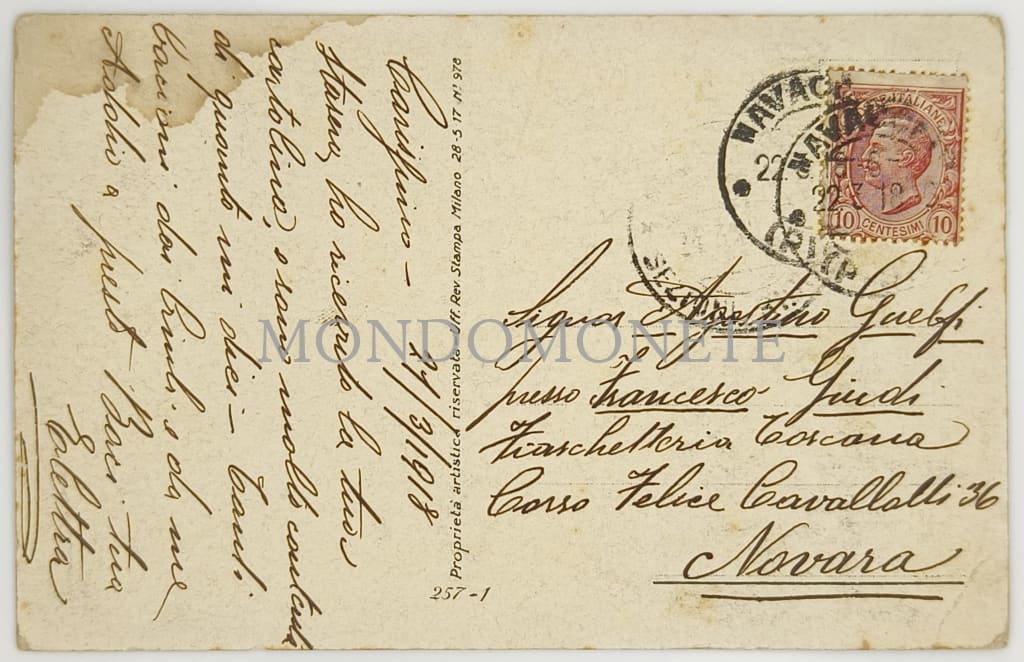 Carissimo — 21/3/1918
Stasera, ho ricevuto la tua
cartolina, e sono molto contenta
di quanto mi dici — Tanti
bacioni dai bimbi e da me
Addio a presto Baci tua
Elettra
Proprietà artistica riservata Uff. Rev. Stampa Milano 28-5 17 N° 978
257-1
NAVACH
22
NAVA
22 3 18
POSTE ITALIANE
10 CENTESIMI 10
Signor Agostino Guelfi
presso Francesco Giudi
Fiaschetteria Toscana
Corso Felice Cavallotti 36
Novara
MONDOMONETE